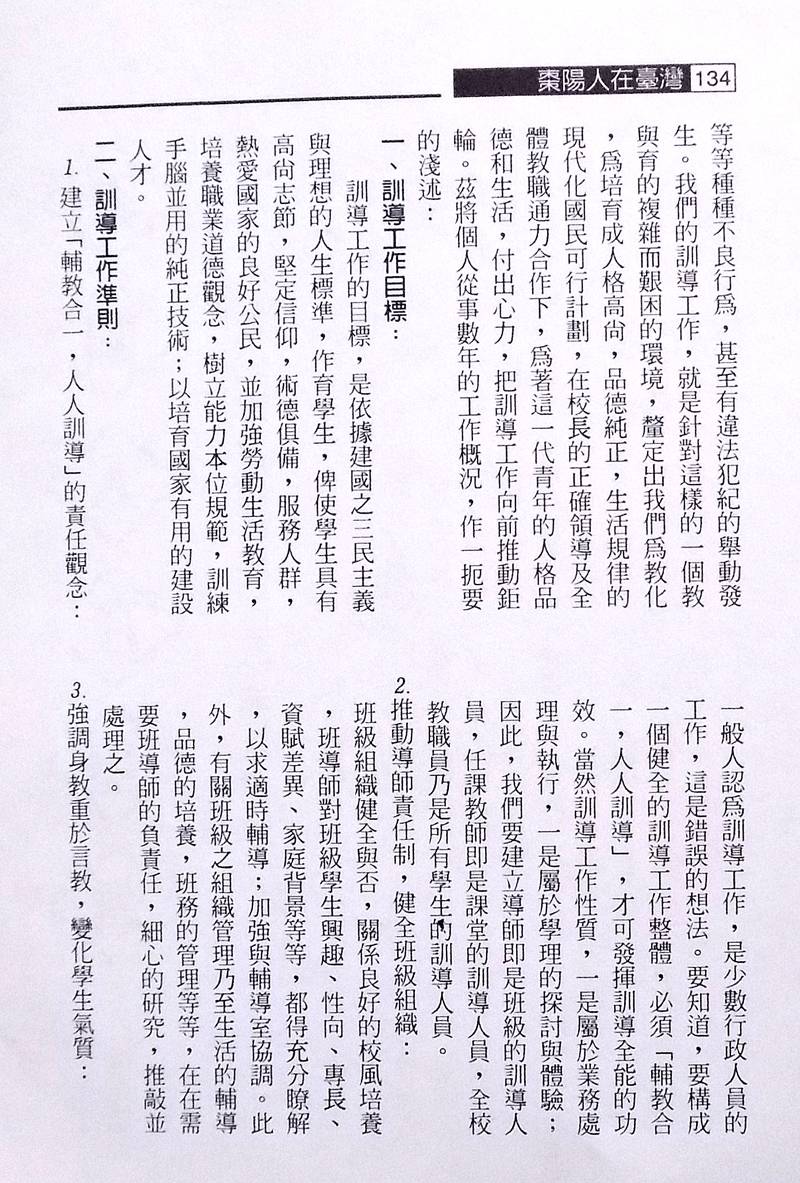 棗陽人在臺灣 134
等等種種不良行爲，甚至有違法犯紀的舉動發
生。我們的訓導工作，就是針對這樣的一個教
與育的複雜而艱困的環境，釐定出我們爲教化
，爲培育成人格高尚，品德純正，生活規律的
現代化國民可行計劃，在校長的正確領導及全
體教職通力合作下，爲著這一代青年的人格品
德和生活，付出心力，把訓導工作向前推動鉅
輪。茲將個人從事數年的工作概況，作一扼要
的淺述：
一、訓導工作目標：
訓導工作的目標，是依據建國之三民主義
與理想的人生標準，作育學生，俾使學生具有
高尚志節，堅定信仰，術德俱備，服務人群，
熱愛國家的良好公民，並加強勞動生活教育，
培養職業道德觀念，樹立能力本位規範，訓練
手腦並用的純正技術；以培育國家有用的建設
人才。
二、訓導工作準則：
1. 建立「輔教合一，人人訓導」的責任觀念：
一般人認爲訓導工作，是少數行政人員的
工作，這是錯誤的想法。要知道，要構成
一個健全的訓導工作整體，必須「輔教合
一，人人訓導」，才可發揮訓導全能的功
效。當然訓導工作性質，一是屬於業務處
理與執行，一是屬於學理的探討與體驗；
因此，我們要建立導師即是班級的訓導人
員，任課教師即是課堂的訓導人員，全校
教職員乃是所有學生的訓導人員。
2. 推動導師責任制，健全班級組織：
班級組織健全與否，關係良好的校風培養
，班導師對班級學生興趣、性向、專長、
資賦差異、家庭背景等等，都得充分瞭解
，以求適時輔導；加強與輔導室協調。此
外，有關班級之組織管理乃至生活的輔導
，品德的培養，班務的管理等等，在在需
要班導師的負責任，細心的研究，推敲並
處理之。
3. 強調身教重於言教，變化學生氣質：